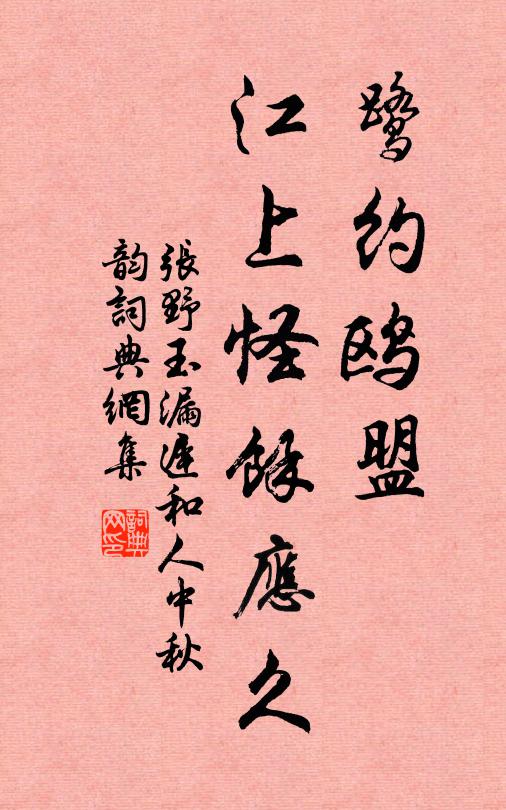 鹭约鸥盟
江上怪餘應久
張野玉漏遲和人中秋
韵詞典網集
詞典网印